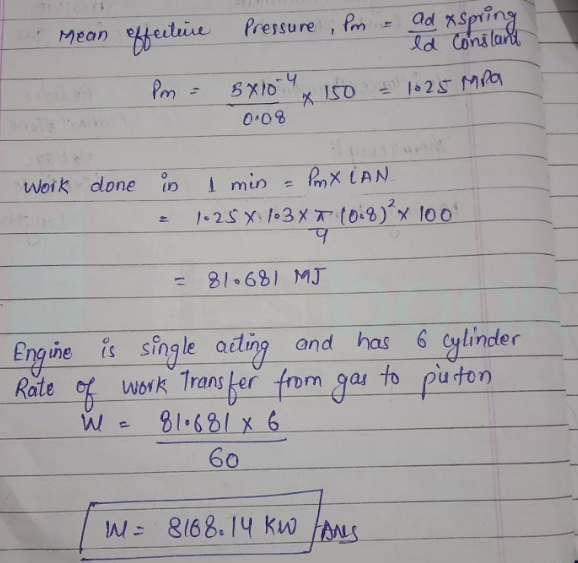 Mean effective Pressure, Pm = ad/ld x Spring Constant
Pm = 5×10⁻⁴/0.08 × 150 = 1.25 MPa
Work done in 1 min = Pm × LAN
= 1.25 × 1.3 × π/4 (0.8)² × 100
= 81.681 MJ
Engine is single acting and has 6 cylinder
Rate of work Transfer from gas to piston
W = 81.681 × 6/60
W = 8168.14 KW Ans